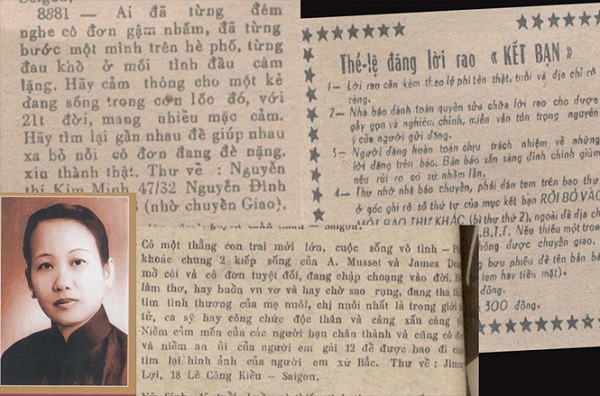 Saigon,
8881 — Ai đã từng đêm
nghe cô đơn gậm nhấm, đã từng
bước một mình trên hè phố, từng
đau khổ ở mối tình đầu câm
lặng. Hãy cảm thông cho một kẻ
đang sống trong cơn lốc đó, với
21t đời, mang nhiều mặc cảm.
Hãy tìm lại gần nhau để giúp nhau
xa bỏ nỗi cô đơn đang đè nặng,
xin thành thật. Thư về : Nguyễn
thị Kim Minh 47/32 Nguyễn Đình
(nhờ chuyển Giao).
Thể-lệ đăng lời rao «KẾT BẠN»
1— Lời rao cần kèm theo lệ phí tên thật, tuổi và địa chỉ rõ
ràng.
2— Nhà báo dành toàn quyền sửa chữa lời rao cho được
gẫy gọn và nghiêm chỉnh, miễn vẫn tôn trọng nguyên
ý của người gửi đăng.
3— Người đăng hoàn toàn chịu trách nhiệm về những
lời đăng trên báo. Bản báo sẵn sàng đính chính giùm
nếu rủi ro có sự nhầm lẫn.
4— Thư nhờ nhà báo chuyển, phải dán tem trên bao thư
ở góc ghi rõ số thứ tự của mục kết bạn RỒI BỎ VÀO
MỘT BAO THƯ KHÁC (bì thư thứ 2), ngoài đề địa ch
.B.T.T. Nếu thiếu một tron
không được chuyển giao.
bưu phiếu đề tên bản bá
tem hay tiền mặt).
đồng.
300 đồng.
Có một thằng con trai mới lớn, cuộc sống vô tình —
khoác chung 2 kiếp sống của A. Musset và James De
mồ côi và cô đơn tuyệt đối, đang chập choạng vào đời.
làm thơ, hay buồn vu vơ và hay chờ sao rụng, đang tha th
tìm tình thương của mẹ nuôi, chị nuôi nhất là trong giới
tử, ca sỹ hay công chức độc thân và càng xấu càng
Niềm cảm mến của các người bạn chân thành và cũng cô đ
và niềm an ủi của người em gái 12 để được bao đi c
tìm lại hình ảnh của người em xứ Bắc. Thư về : Jim
Lợi, 18 Lê Công Kiều — Saigon.